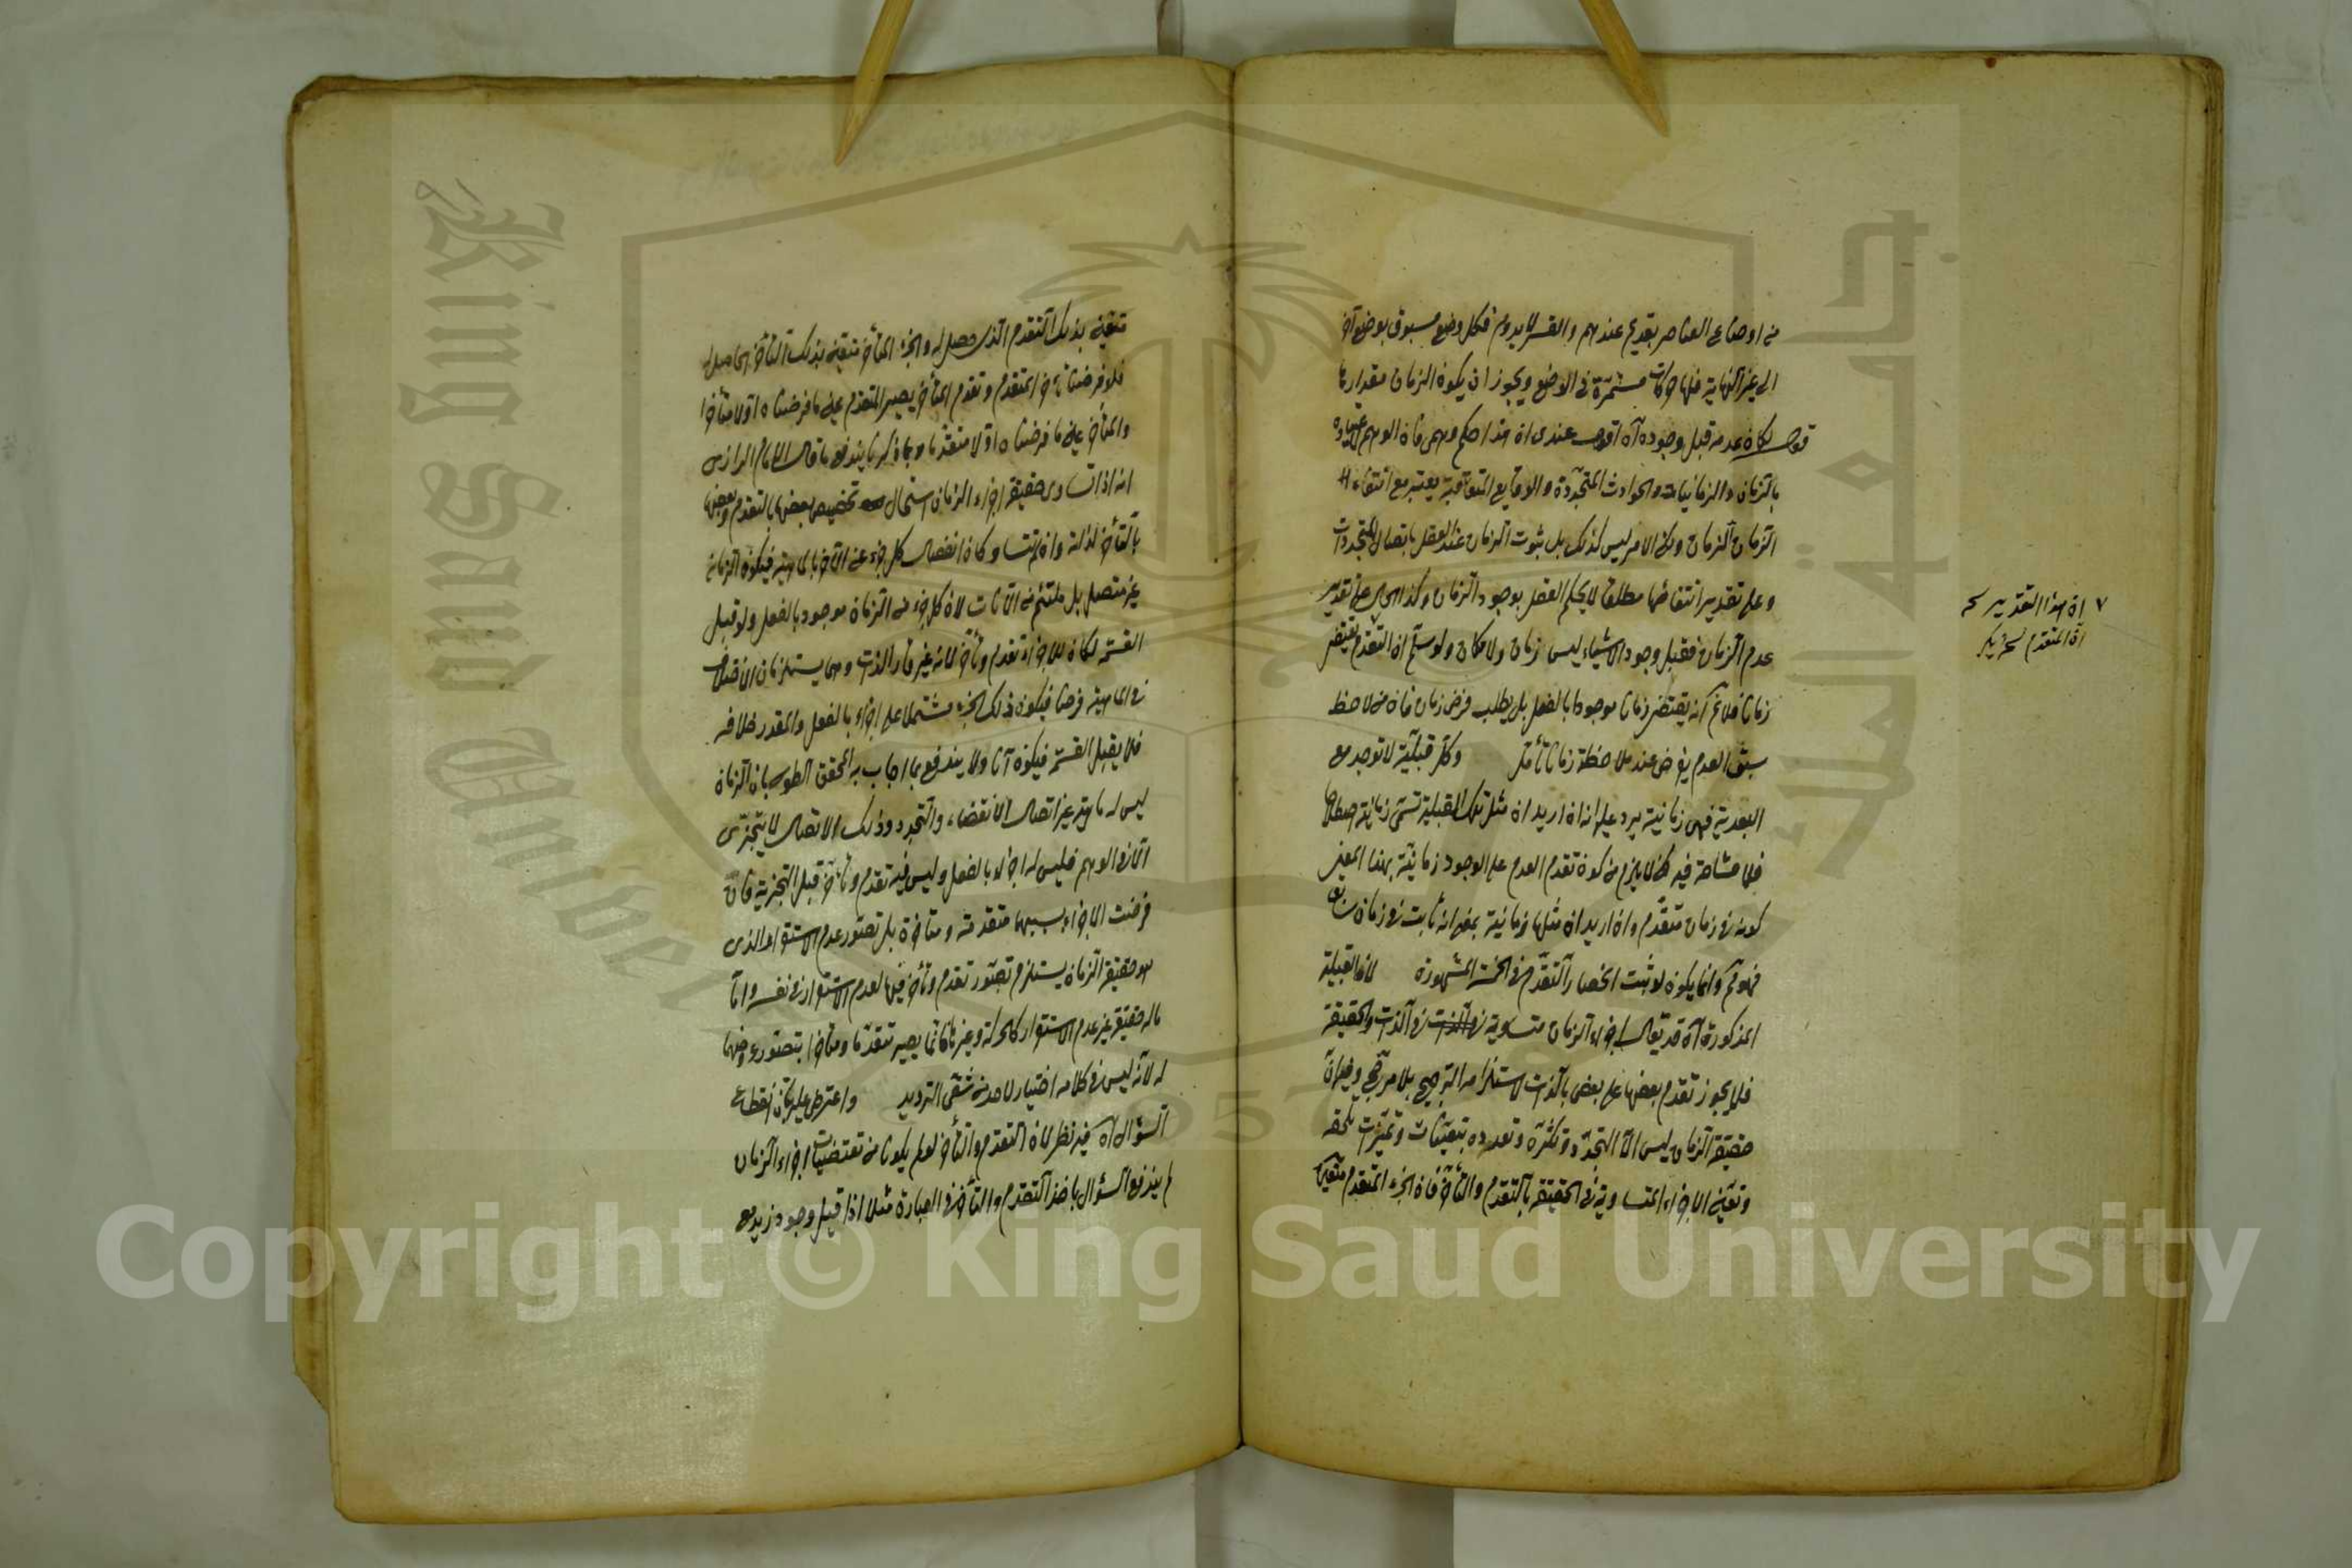 من اوضاع العناصر بقديم عندهم والقسر لا يدوم فكل وضع مسبوق بوضع آخر
الى غير النهاية فلها حركات مستمرة في الاوضع ويجوز ان يكون الزمان مقدارها
قوله لكان عدمه قبل وجوده آه اقول عندى ان هذا حكم وهمى فان الوهم
بالزمان والزمانيات والحوادث المتجددة والوقايع المتعاقبة يعتبر مع انتفاء
الزمان الزمان ولكن الامر ليس كذلك بل ثبوت الزمان عند العقل باتصال المتجددات
وعلى تقدير انتفائها مطلقا لا يحكم العقل بوجود الزمان وكذا الحال على تقدير
عدم الزمان فقبل وجود الاشياء ليس زمان ولا مكان ولو سلم ان التقدم يقتضى
زمانا فلا نم انه يقتضى زمانا موجودا بالفعل بل يطلب فرض زمان فان من لاحظ
سبق العدم يفرض عند ملاحظة زمانا تأمل وكل قبلية لا توجد مع
البعدية فهى زمانية يرد عليه انه ان اريد ان مثل تلك القبلية تسمى زمانية اصطلاحا
فلا مشاحة فيه لكن لا يلزم من كون تقدم العدم على الوجود زمانية بهذا المعنى
كونه في زمان متقدم وان اريد ان مثلها زمانية بمعنى انه ثابت في زمان سابق
فهو نم وانما يكون لو ثبت انحصار التقدم في الخمسة المشهورة لان القبلية
المذكورة آه قد يقال اجزاء الزمان متساوية في الذات في الذات والحقيقة
فلا يجوز تقدم بعضها على بعض بالذات لاستلزامه الترجيح بلا مرجح وفيه ان
حقيقة الزمان ليس الا التجدد وتكثره وتعدده بتعينات وتميزات تلحقه
وتعين الاجزاء المتساوية في الحقيقة بالتقدم والتأخر فان الجزء المتقدم متعين
ان هذا التقدير
ان المتقدم
متعين بذلك التقدم الذى حصل له والجزء المتأخر متعين بذلك التأخر الحاصل له
فلو فرضنا تأخر المتقدم وتقدم المتأخر يصير المتقدم عين ما فرضناه اولا متأخرا
والمتأخر عين ما فرضناه اولا متقدما وبما ذكرنا يندفع ما قال الامام الرازى
انه اذا تساوى حقيقة اجزاء الزمان استحال تخصيص بعضها بالتقدم وبعضها
بالتأخر لذاته وان لم تتساو كان انفصال كل جزء عن الآخر بالماهية فيكون الزمان
غير متصل بل ملتئم من الآنات لان كل جزء من الزمان موجود بالفعل ولو قبل
القسمة لكان للاجزاء تقدم وتأخر لانه غير قار الذات وهما يستلزمان الانفصال
في الماهية فرضا فيكون ذلك الجزء مشتملا على اجزاء بالفعل والمقدر خلافه
فلا يقبل القسمة فيكون آنا ولا يندفع بما اجاب به المحقق الطوسى بان الزمان
ليس له ماهية غير اتصال الانقضاء والتجدد وذلك الاتصال لا يتجزى
الا في الوهم فليس له اجزاء بالفعل وليس فيه تقدم وتأخر قبل التجزية فان
فرضت الاجزاء بسببها متقدمة ومتأخرة بل تصور عدم الاستقرار الذى
هو حقيقة الزمان يستلزم تصور تقدم وتأخر فيها لعدم الاستقرار في نفسه واما
ما له حقيقة غير عدم الاستقرار كالحركة وغيرها فانما يصير متقدما ومتأخرا بتصور عروضهما
له لانه ليس في كلامه اختيار لاحد من شقى الترديد واعترض عليه بان انقطاع
السؤال آه فيه نظر لان التقدم والتأخر لو لم يكونا من مقتضيات اجزاء الزمان
لم يندفع السؤال باخذ التقدم والتأخر في العبارة مثلا اذا قيل وجود زيد مع
King Saud University
Copyright © King Saud University
1957